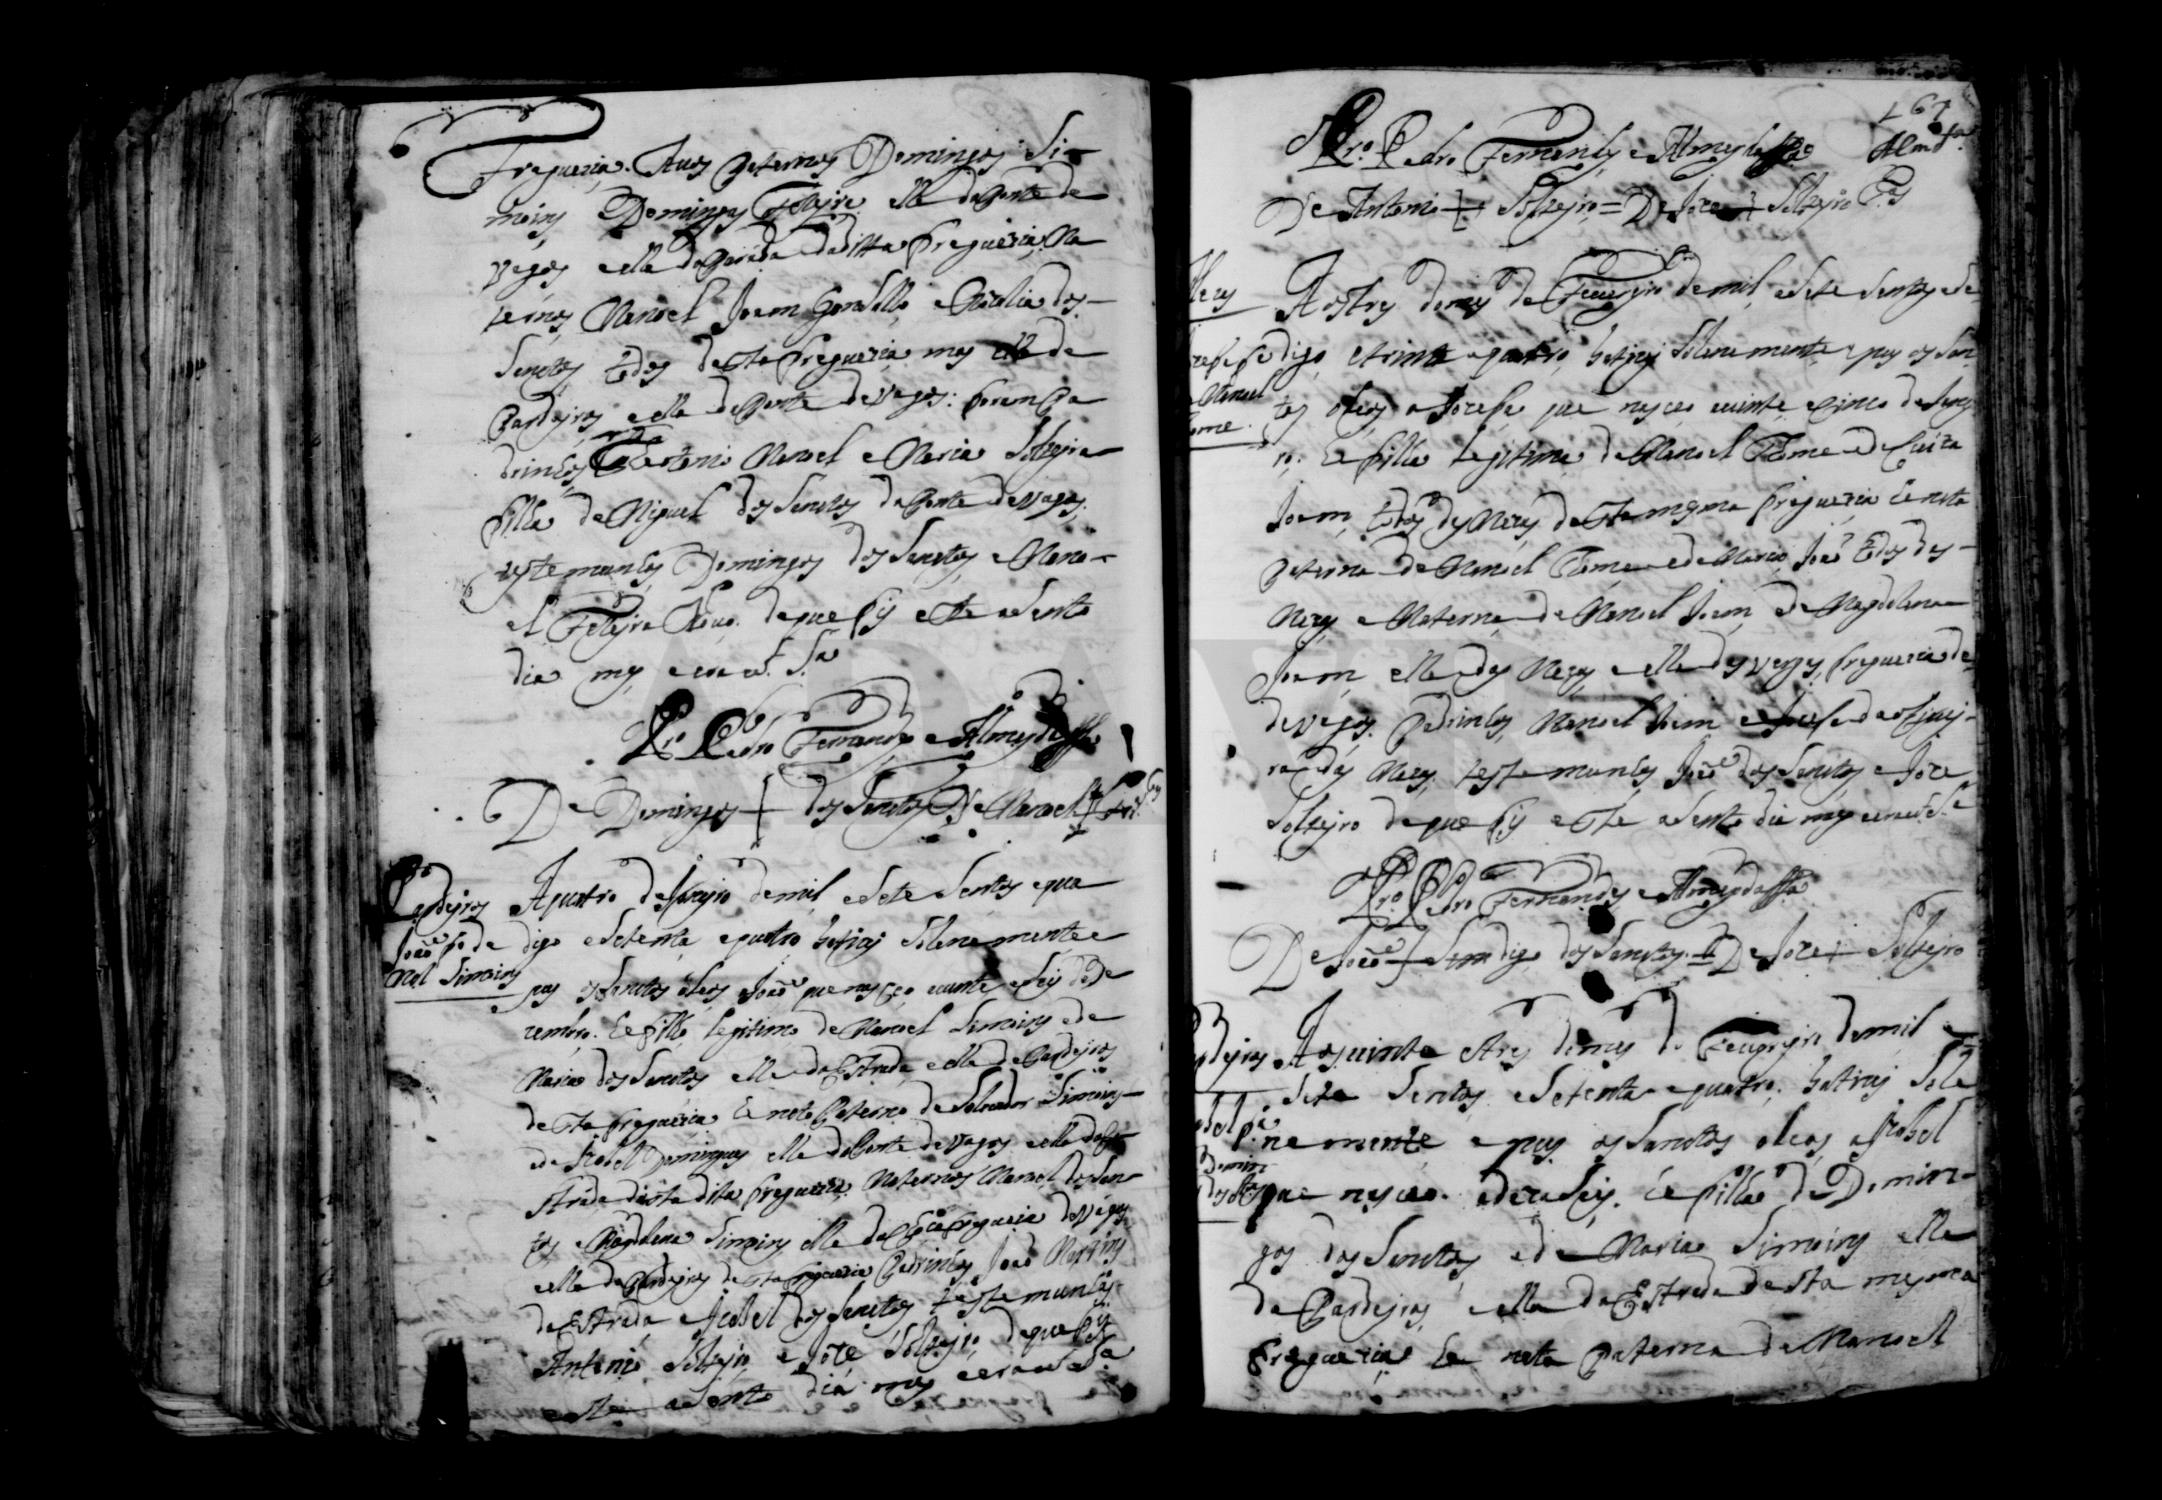 freguezia. Avos Paternos Domingos Si-
mois e Domingas Freyre elle da Ponte de
Vagos e ella da Parada da ditta freguezia. Ma
ternos Manoel Joam e Natalia dos
Sanctos todos desta freguezia mas elle de
Pardeyros e ella da Ponte de Vagos: foram Pa
drinhos Antonio Manoel e Maria Solteyra
filha de Miguel dos Sanctos da Ponte de Vagos.
testemunhas Domingos dos Sanctos e Mano-
el Freyre Novo. de que fis este asento
dia mes e era ut Sa
Pro. Pedro Fernandes e Almeyda
De Domingos + dos Sanctos De Manoel +
Pardeyros
João fo de
Mel Simois
A quatro de Janyro de mil e Sete Sentos e qua
digo e Setenta e quatro batizei Solenemente e
pus os Sanctos oleos a João que nasceo a vinte e Seis de De
zembro. he filho legitimo de Manoel Simois e de
Maria dos Sanctos elle da Estrada e ella de Pardeyros
desta freguezia he neto Paterno de Salvador Simois
e de Izabel Domingues elle da Ponte de Vagos e ella da E
strada desta dita freguezia. Maternos Manoel dos San
tos e Magdalena Simois elle da freguezia de Vagos
e ella de Pardeyros desta freguezia Padrinhos João Martins
da Estrada e Izabel dos Sanctos testemunhas
Antonio Solteyro e Joze Solteyro de que fis
este asento dia mes e era ut Sa
167
Almda
Pro. Pedro Fernandes e Almeyda
De Antonio + Solteyro = De Joze + Solteyro
Mezas
Jozefa fa
Manoel
Tome.
Aos tres do mes de Feureyro de mil e Sete Sentos e Se
digo e trinta e quatro batizei Solenemente e pus os San
tos oleos a Jozefa que nasceo a vinte e Sinco de Janey
ro. he filha legitima de Manoel Tome e de Luiza
Joam todos das Mezas desta mesma freguezia he neta
Paterna de Manoel Tome e de Maria João todos das
Mezas e Materna de Manoel Joam e de Magdalena
Joam elle das Mezas e ella das freguezia de
de Vagos. Padrinhos Manoel Joam e Jozefa de Oliuei-
ra das Mezas, testemunhas João dos Sanctos e Joze
Solteyro de que fis este asento dia mes e era ut Sa
Pro. Pedro Fernandes e Almeyda
De João + Sam digo dos Sanctos. = De Joze + Solteyro
Aos vinte e tres do mes de Feureyro de mil e
Sete Sentos e Setenta e quatro batizei Sole
nemente e pus os Sanctos oleos a Izabel
que nasceo a dezaseis. he filha de Domin-
gos dos Sanctos e de Maria Simois elle
de Pardeyros e ella da Estrada desta mesma
freguezia he neta Paterna de Manoel